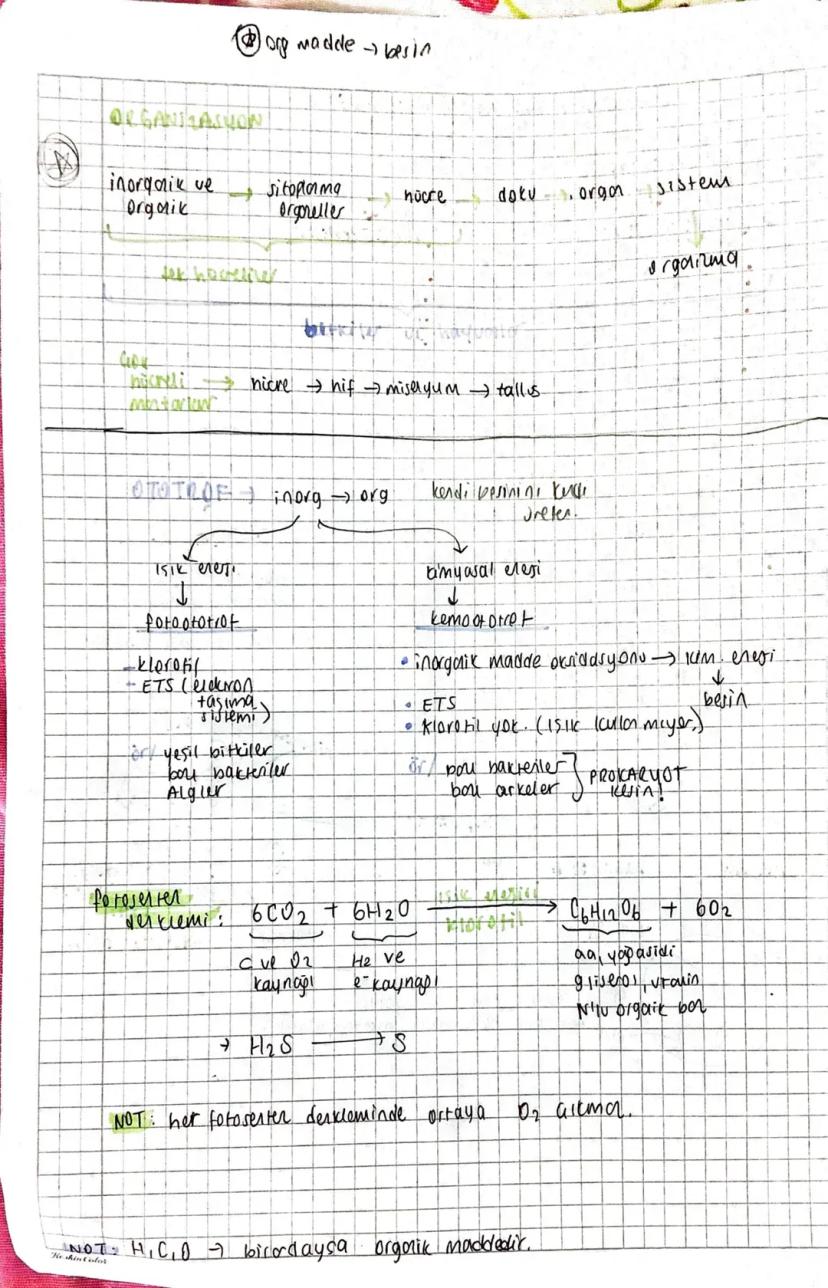 org madde → besin
ORGANİZASYON
inorganik ve organik → sitoplazma organeller → hücre → doku → organ sistem
↓
organizma
tek hücreliler
bitkiler ve hayvanlar
Çok hücreli mantarlar → hücre → hif → miselyum → tallus
OTOTROF → inorg → org kendi besinini kendi üretir.
ışık enerji
↓
fotoototrof
- klorofil
- ETS (elektron taşıma sistemi)
ör/ yeşil bitkiler
bazı bakteriler
Algler
kimyasal enerji
↓
kemoototrof
• inorganik madde oksidasyonu → kim. enerji
↓
besin
• ETS
• klorofil yok. (ışık kullanmıyor.)
ör/ bazı bakteriler
bazı arkeler
PROKARYOT kesin!
fotosentez denklemi: 6CO2 + 6H2O ışık enerjisi klorofil → C6H12O6 + 6O2
C ve O2 kaynağı
H2 ve e⁻ kaynağı
aa, yağ asidi
gliserol, vitamin
N'lu organik baz
→ H2S → S
NOT: her fotosentez denkleminde ortaya O2 çıkmaz.
NOT: H, C, O → bir ordaysa organik maddedir.